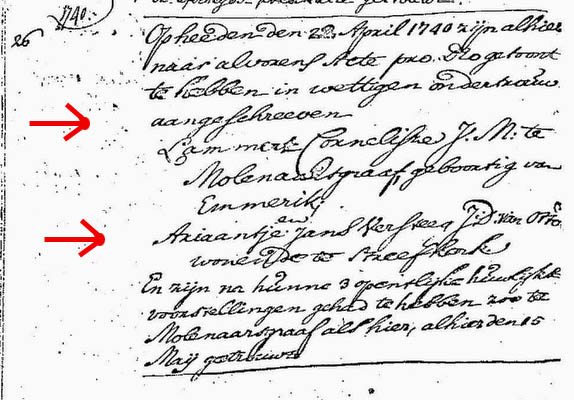 1740.
26
Op heeden den 22 April 1740 zijn alhier
naar alvorens Acte pro. Deo getoont
te hebben in wettigen ondertrouw
aangeschreeven
Lammert Cornelisse J. M: te
Molenaarsgraaf, geboortig van
Emmerik,
en
Ariaantje Jans Versteeg J.D. van
wonende te Streefkerk
En zijn na hunne 3 opentlijke huwlijkse
voorstellingen gehad te hebben zoo te
Molenaarsgraaf als hier, alhier den 15
Maij getrouwt